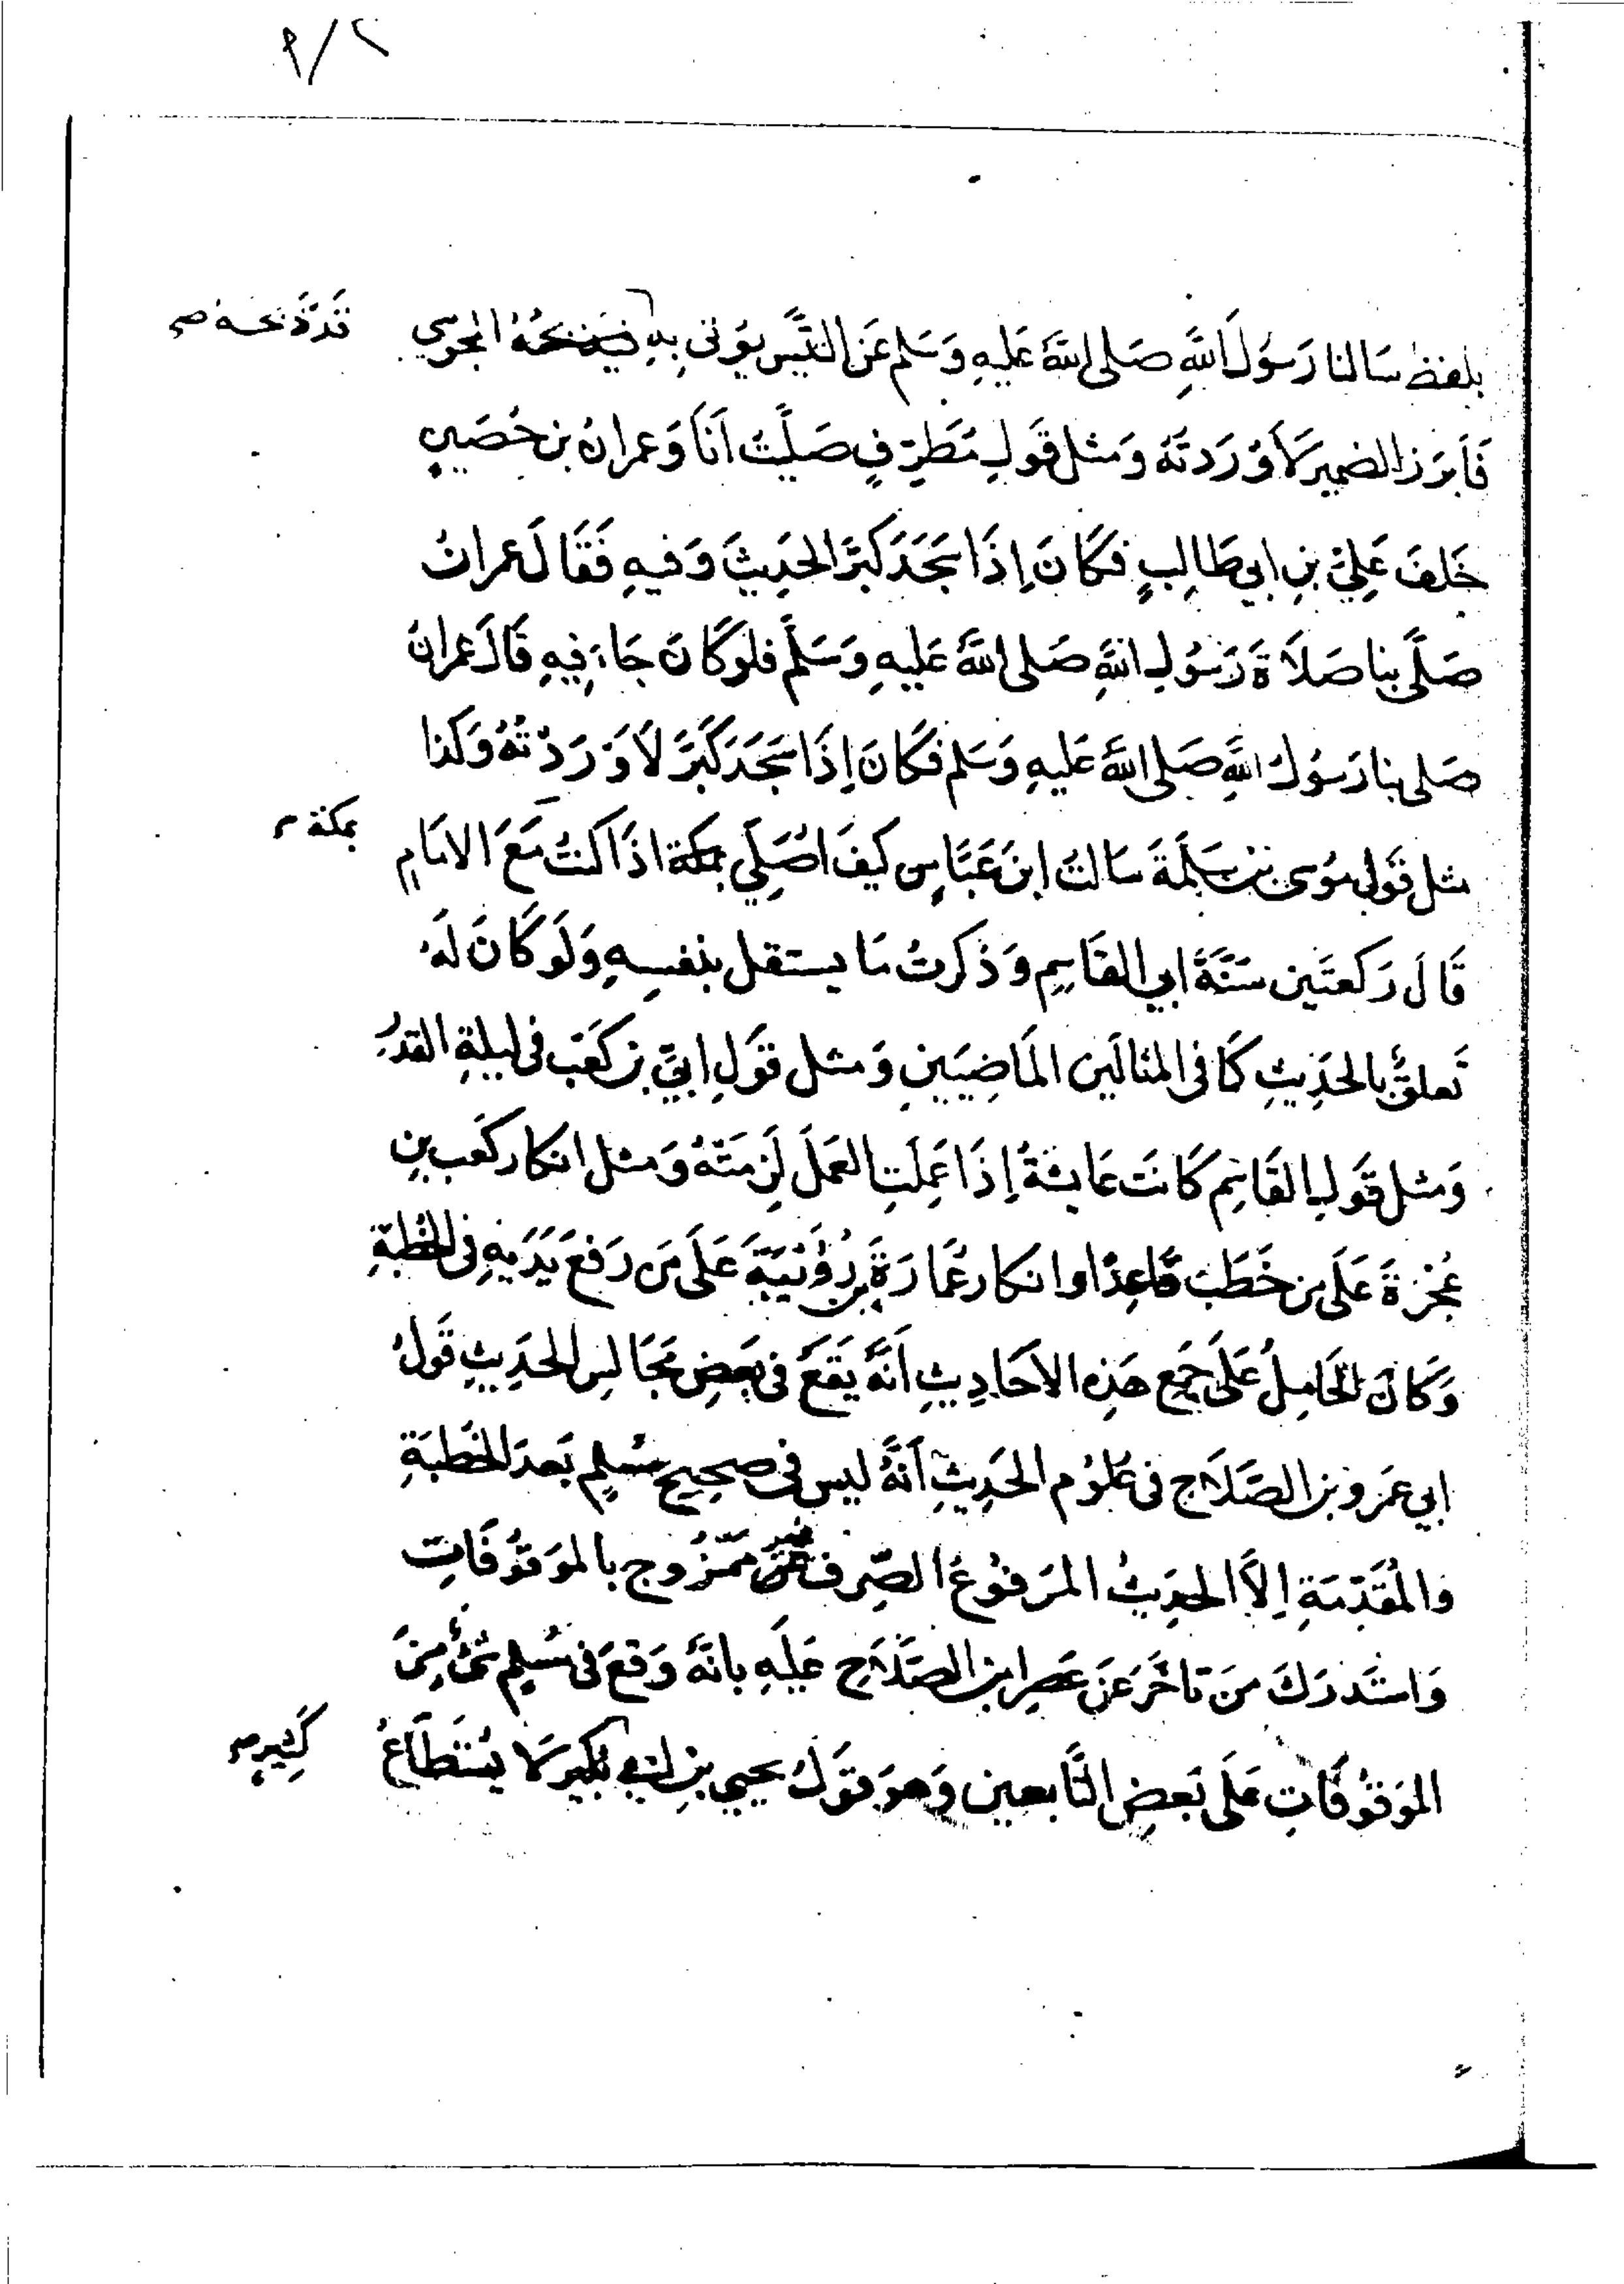 ٢/٩
بلفظ سَالنا رَسُولَ اللَّهِ صَلى اللهُ عَليهِ وَسَلم عَن التَيسِ يؤتى بِهِ المجوسي
فَأبرَز الضمير لأورَدتَهُ وَمثل قَولِ مُطَرِّفٍ صَلَّيتُ أنَا وَعمرانُ بن حُصَينٍ
خَلفَ عَلِيِّ بنِ ابي طَالِبٍ فكَانَ إذَا سَجَدَ كبَّرَ الحَدِيثَ وَفيهِ فَقَالَ عمرانُ
صَلَّى بنا صَلَاةَ رَسُولِ اللهِ صَلى اللهُ عَليهِ وَسَلَّم فلو كَانَ جَاءَ فِيهِ قَالَ عمرانُ
صَلى بنا رَسُولُ اللهِ صَلى اللهُ عَليهِ وَسَلم فكَانَ إذَا سَجَدَ كَبَّرَ لَأَوْرَدْتُهُ وَكذا
بمكة
مثل قَولِ مُوسَى بن سَلَمَةَ سَالتُ ابنَ عَبَّاسٍ كيفَ اُصَلِّي بمكة اذَا كنتُ مَعَ الامَامِ
قَالَ رَكعتَين سُنَّةَ ابي القَاسِمِ وَذكَرتُ مَا يستقل بنفسِهِ وَلَو كَانَ لَهُ
تَعلقٌ بالحَدِيثِ كَمَا في المثالَين المَاضِيَينِ وَمثل قَولِ ابيِّ بن كَعَب في ليلةِ القدرِ
وَمثل قَولِ القَاسِمِ كَانَت عَائشةُ إذَا عَمِلَتِ العَمَلَ لَزِمَتْهُ وَمثل انكار كَعَب بنِ
عُجْرَةَ عَلَى من خَطَبَ قَاعِدًا وانكار عُمَارَةَ بنِ رُؤَيْبَةَ عَلَى مَن رَفَعَ يَدَيهِ في الخُطبَةِ
وَكَانَ الحَامِلُ عَلَى جَمع هَذِهِ الأحَادِيثِ أنَّهُ يَقَعَ في بَعضِ مَجَالسِ الحَدِيثِ قَولُ
ابي عَمَرو بن الصَّلَاحِ في عُلوُم الحَدِيثِ أنَّهُ ليس في صحِيحِ مُسْلِم بَعدَ الخُطبَةِ
وَالمُقَدِّمَةِ إلاَّ الحَدِيثُ المَرفوُعُ الصِّرف غير مَمْزُوج بالموَقوُفَاتِ
وَاستَدرَكَ مَن تأخَّرَ عَن عَصرِ ابن الصَّلَاحِ عَليهِ بانَّهُ وَقعَ في مُسْلِمٍ شئٌ مِنَ
كَثِيرٍ
الموَقوُفَاتِ عَلَى بَعضِ التَّابعين وَهوَ قوَلُ يحيي بنِ ابي لا يُستَطَاعُ